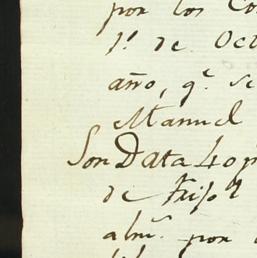 por los Co
1º de Oct
año, qe se
Manuel
Son Data 40 p
de trigo q
almˢ por